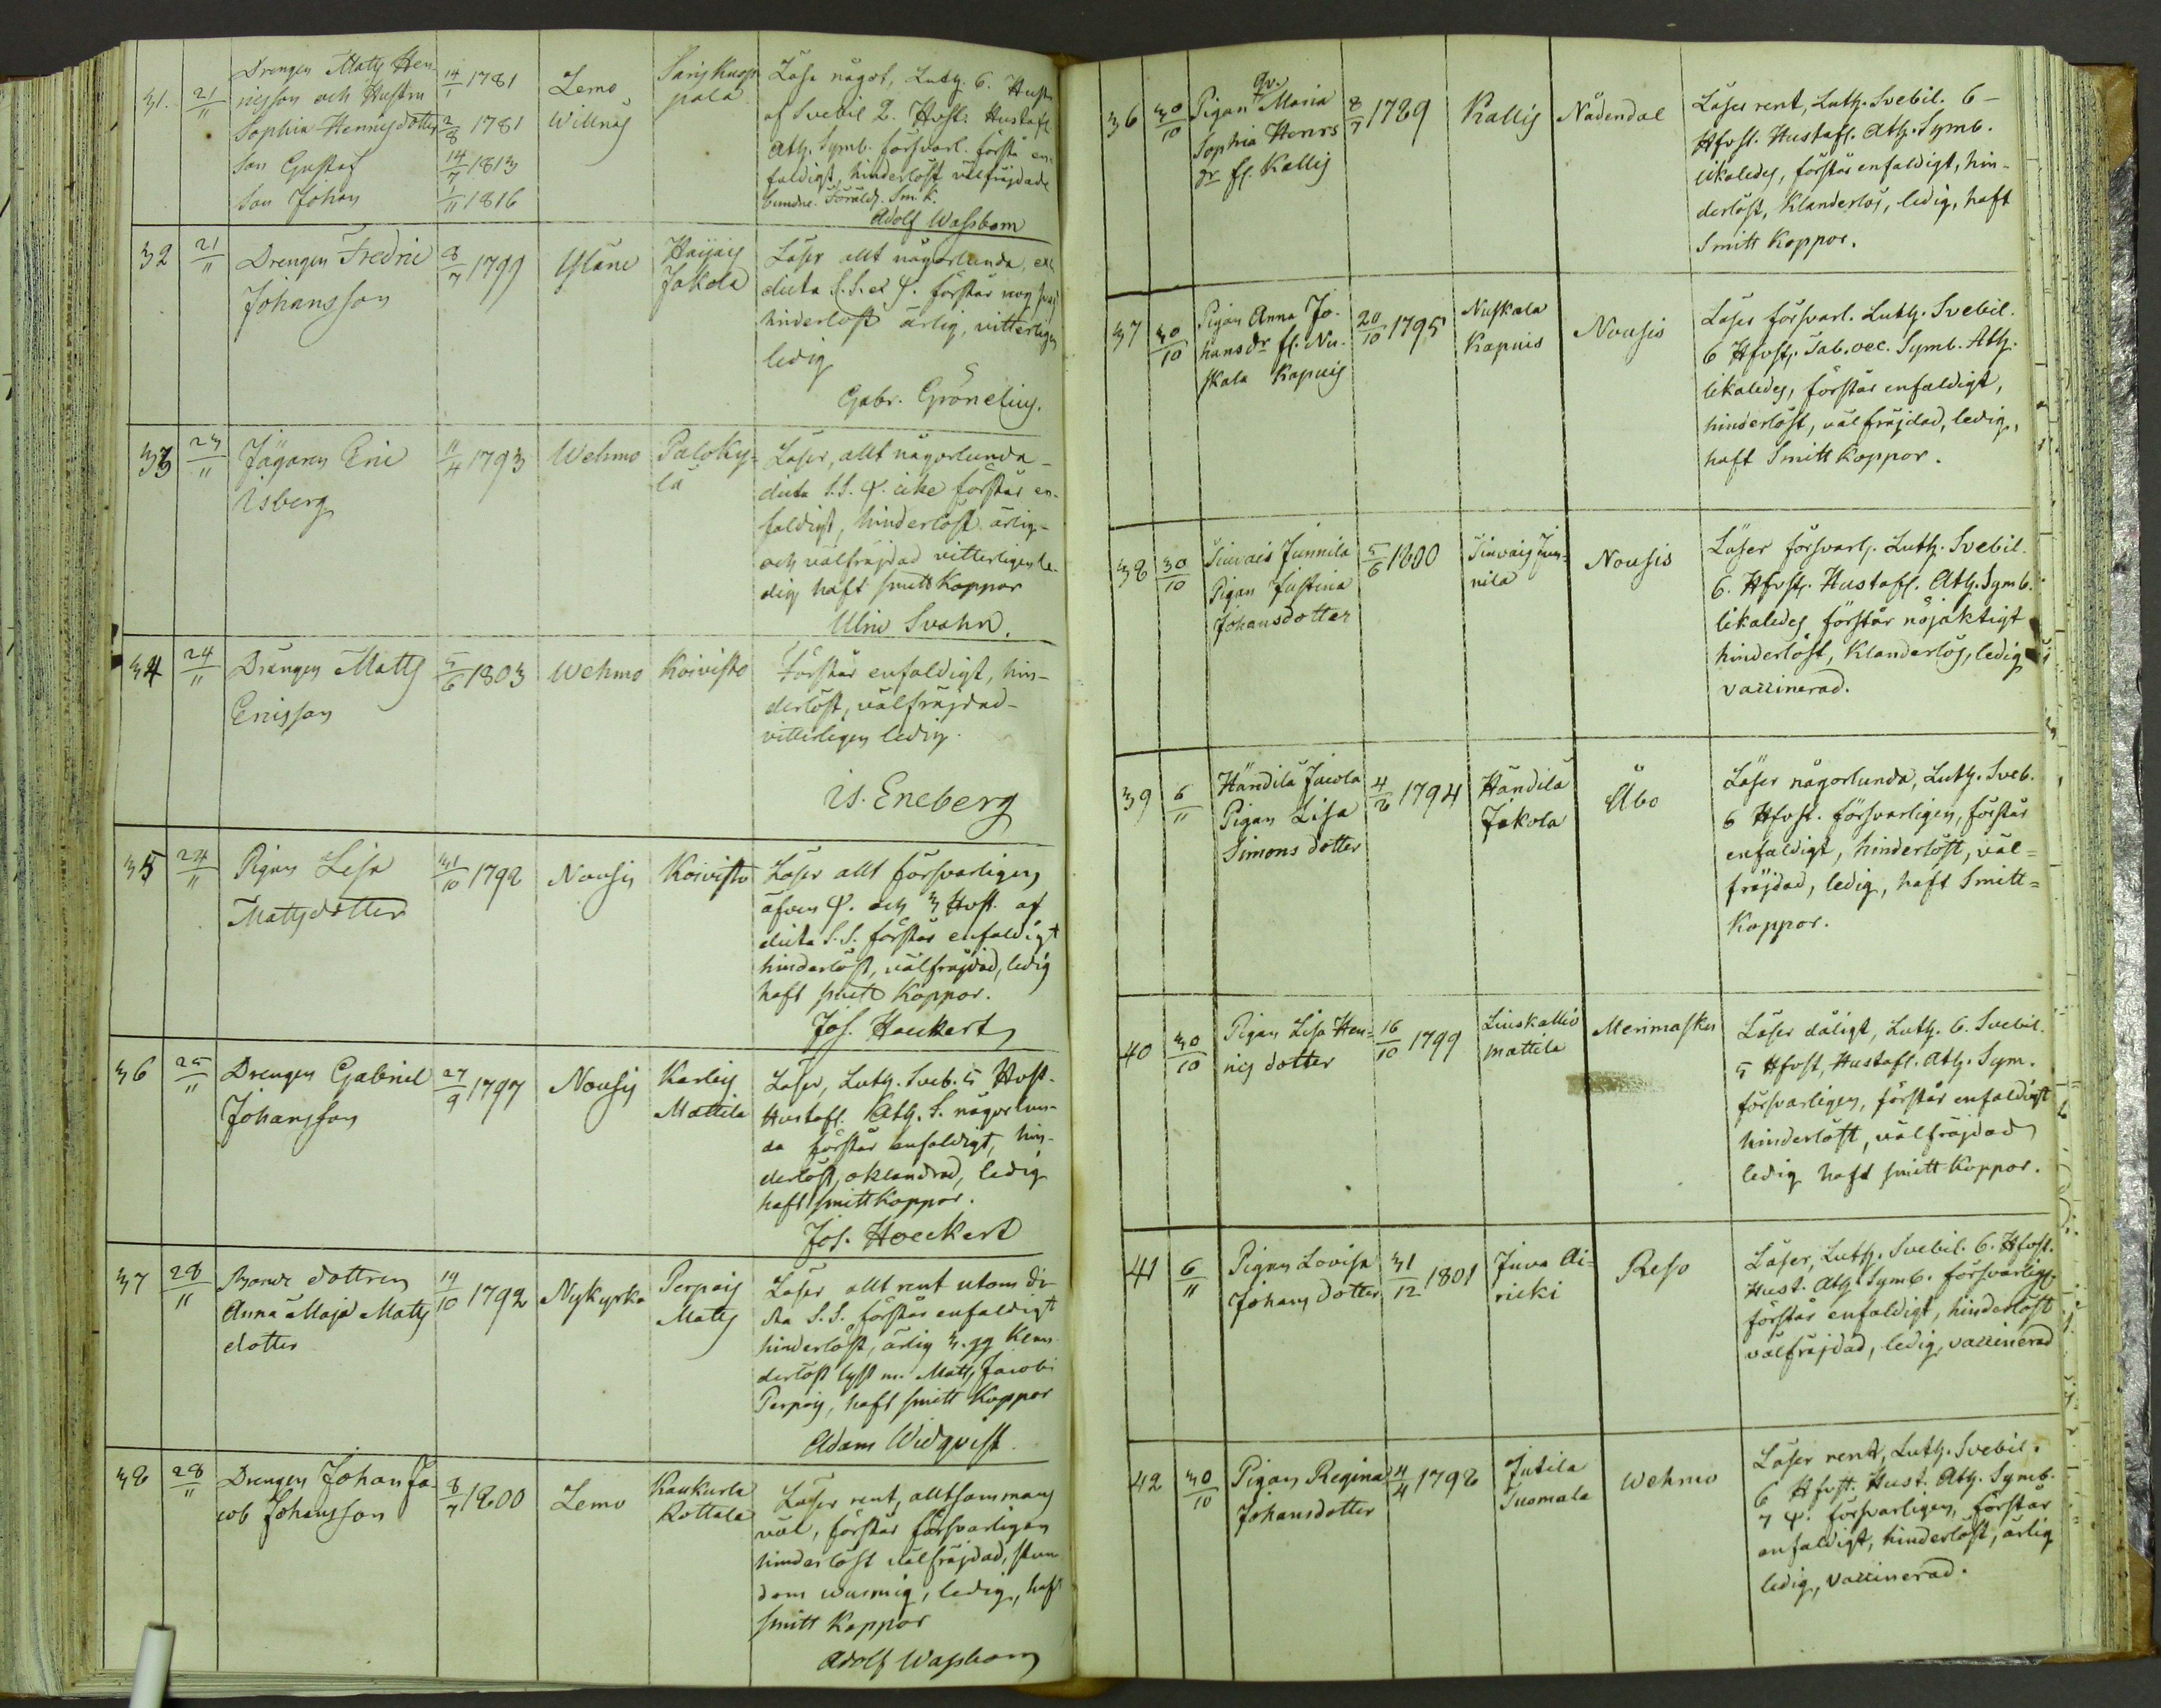 31. 21/11 Drengen Matts Hen-
ricsson och Hustru
Sophia Henricsdotter
Son Gustaf
Son Johan
14/1 1781
2/8 1781
14/7 1813
1/11 1816
Lemo
Willnäs
pala
Läsa något, Luth. 6. Hust.
af Svebil 2. Hfst. Hustafl.
Ath. Symb. försvarl. förstå en-
faldigt, hinderlöst välfräjdade
Adolf Wassbom
32 21/11 Drengen Fredric
Johansson
8/7 1799
Yläne
Haijais
Jakola
Läser allt någorlunda, ex.
dicta S. S. et φ. förstår nog
hinderlöst ärlig, vitterligen
ledig
Gabr. Grönelius.
33 23/11 Jägaren Eric
Isberg
11/4 1793
Wehmo
Paloky-
lä
Läser, allt någorlunda
dicta S. S. φ. icke förstår en-
faldigt, hinderlöst ärlig
och välfräjdad vitterligen le-
dig haft smittkoppor
Ulric Svahn.
34 24/11 Drängen Matts
Ericsson
5/6 1803
Wehmo
Koivisto
Förstår enfaldigt, hin-
derlöst, välfräjdad
vitterligen ledig.
Is. Eneberg
35 24/11 Pigan Lisa
Mattsdotter
31/10 1792
Nousis
Koivisto
Läser allt försvarligen
äfven φ. och 3 Hfst. af
dicta S. S. förstår enfaldigt
hinderlöst, välfräjdad, ledig
haft smitt koppor.
Jos. Hoeckert
36 25/11 Drengen Gabriel
Johansson
27/9 1797
Nousis
Karleis
Mattila
Läser, Luth. Sveb. 5 Hfst.
Hustafl. Ath. S. någorlun-
da förstår enfaldigt, hin-
derlöst, oklandrad, ledig
haft smittkoppor.
Jos. Hoeckert
37 28/11 Bonde dottren
Anna Maja Matts
dotter
19/10 1792
Nykyrka
Perpois
Matts
Läser allt rent utom di-
cta S. S. förstår enfaldigt
hinderlöst, ärlig 3. gg klan-
derlöst lyst m. Matts Jacobs
Perpois, haft smitt koppor
Adam Widqvist.
38 28/11 Drengen Johan Ja-
cob Johansson
8/7 1800
Lemo
Kaukurla
Rottala
Läser rent, alltsammans
väl, förstår försvarligen
hinderlöst välfräjdad, stun-
dom ledig, haft
smitt koppor
Adolf Wassbom
36 30/10 Pigan Maria
Sophia Henrs
dr fr. Kallis
8/7 1789
Kallis
Nådendal
Läser rent, Luth. Svebil. 6
Hfvst. Hustafl. Ath. Symb.
likaledes, förstår enfaldigt, hin-
derlöst, Klanderlös, ledig, haft
Smitt koppor.
37 30/10 Pigan Anna Jo-
hansdr fr. Nu-
skala Kapuis
20/10 1795
Nuskala
Kapuis
Nousis
Läser försvarl. Luth. Svebil.
6 Hfvst. Tab. oec. Symb. Ath.
likaledes, förstår enfaldigt,
hinderlöst, välfräjdad, ledig,
haft Smitt koppor.
38 30/10 Sinvais Junnila
Pigan Justina
Johansdotter
5/6 1800
Sinvais Jun-
nila
Nousis
Läser försvarl. Luth. Svebil.
6. Hfvst. Hustafl. Ath. Symb.
likaledes förstår nöjaktigt
hinderlöst, Klanderlös, ledig
vaccinerad.
39 6/11 Händilä Jacola
Pigan Lisa
Simons dotter
1794
Händilä
Jakola
Åbo
Läser någorlunda, Luth. Sveb.
6 Hfvst. försvarligen, förstår
enfaldigt, hinderlöst, väl=
fräjdad, ledig, haft Smitt=
koppor.
40 30/10 Pigan Lisa Hen=
rics dotter
16/10 1799
Liuskallio
Mattila
Merimasku
Läser dåligt, Luth. 6. Svebil.
5 Hfvst, Hustafl. Ath. Sym.
försvarligen, förstår enfaldigt
hinderlöst, välfräjdad
ledig haft smitt koppor.
41 6/11 Pigan Lovisa
Johans dotter
31/12 1801
Juva Ai-
ricki
Reso
Läser, Luth. Svebil. 6. Hfvst.
Hust. Ath. Symb. försvarligt
förstår enfaldigt, hinderlöst
välfräjdad, ledig, vaccinerad
42 30/10 Pigan Regina
Johansdotter
4/4 1798
Jutila
Tuomala
Wehmo
Läser rent, Luth. Svebil.
6 Hfvst. Hust. Ath. Symb.
7 φ. försvarligen, förstår
enfaldigt, hinderlöst, ärlig
ledig, vaccinerad.